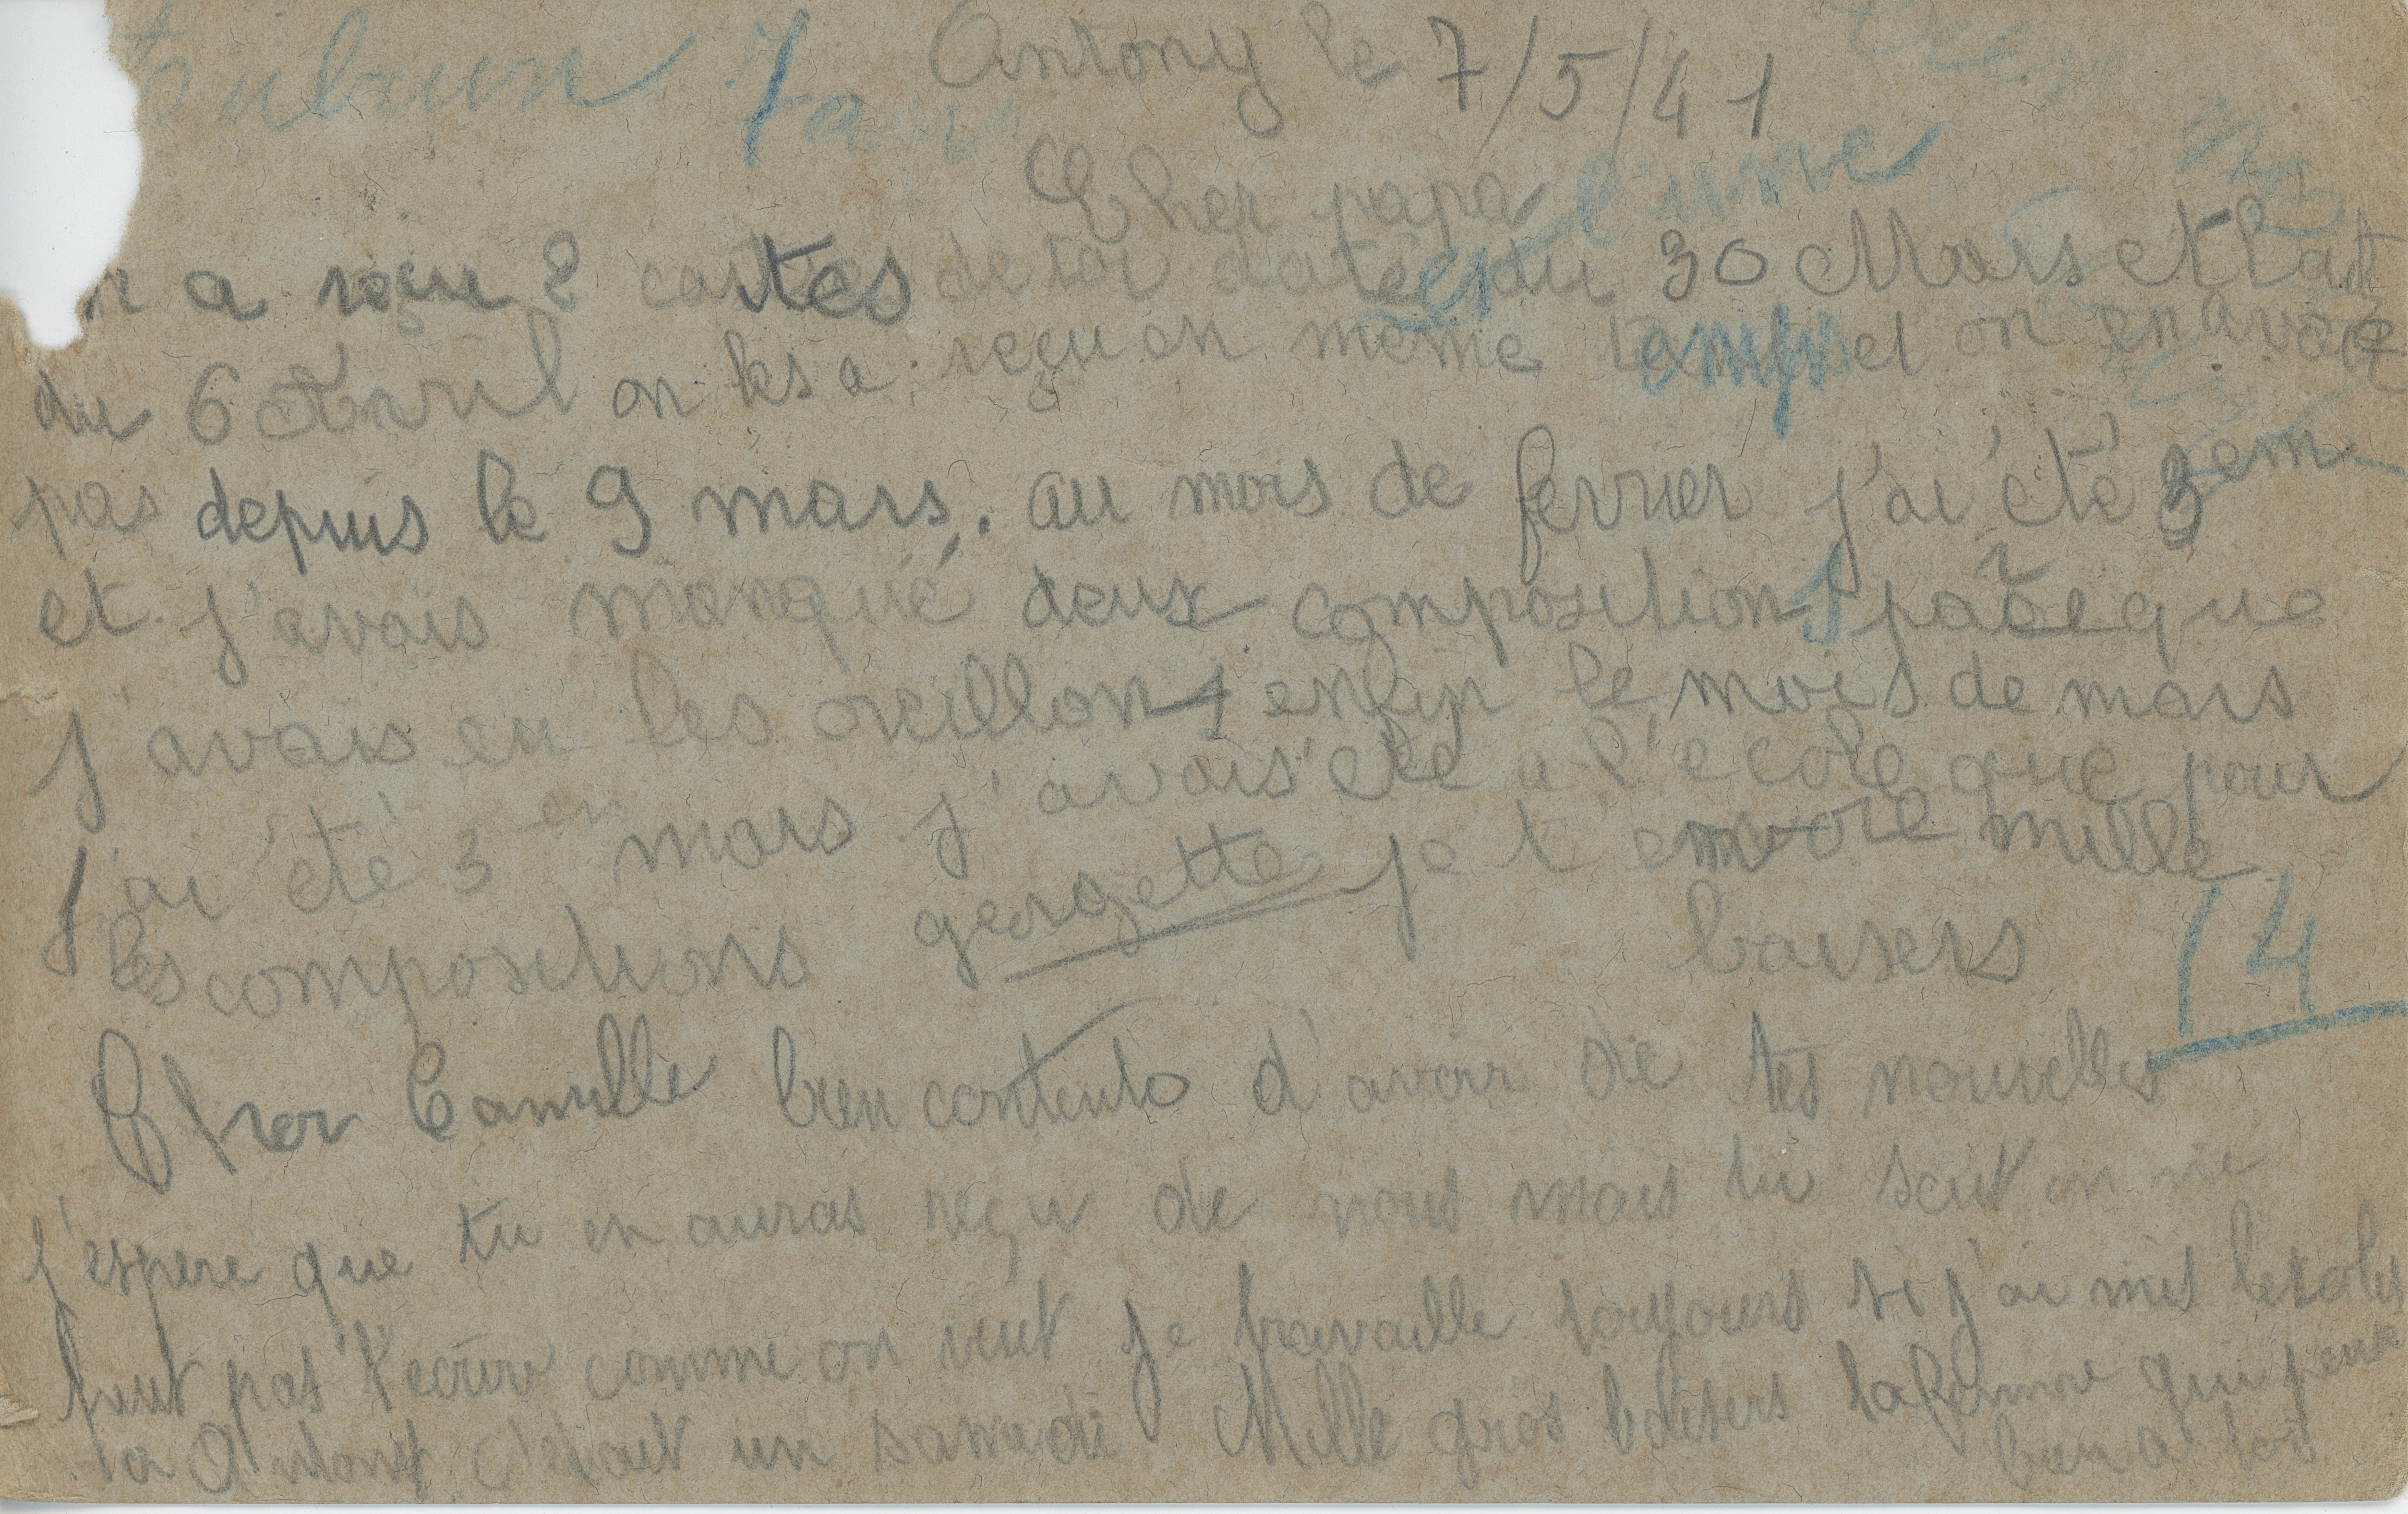 Antony le 7/5/41
Cher papa
l'une
n a reçu 2 cartes de toi datées du 30 Mars et l'aut
du 6 Avril on les a reçu en même temps et on en avait
pas depuis le 9 mars. au mois de fevrier j'ai été 3em
et j'avais manqué deux compositions parceque
j'avais eu les oreillons enfin le mois de mars
j'ai été 3em mars j'avais été a l'ecole que pour
les compositions georgette je t'envoie mille
baisers
14
Cher Camille bien contente d'avoir de tes nouvelles
j'espere que tu en auras reçu de nous mais tu sait on ne
faut pas t'ecrire comme on veut je travaille toujours si j'ai mis
a Antony c'était un samedi Mille gros baisers ta femme qui pense
bien a toi